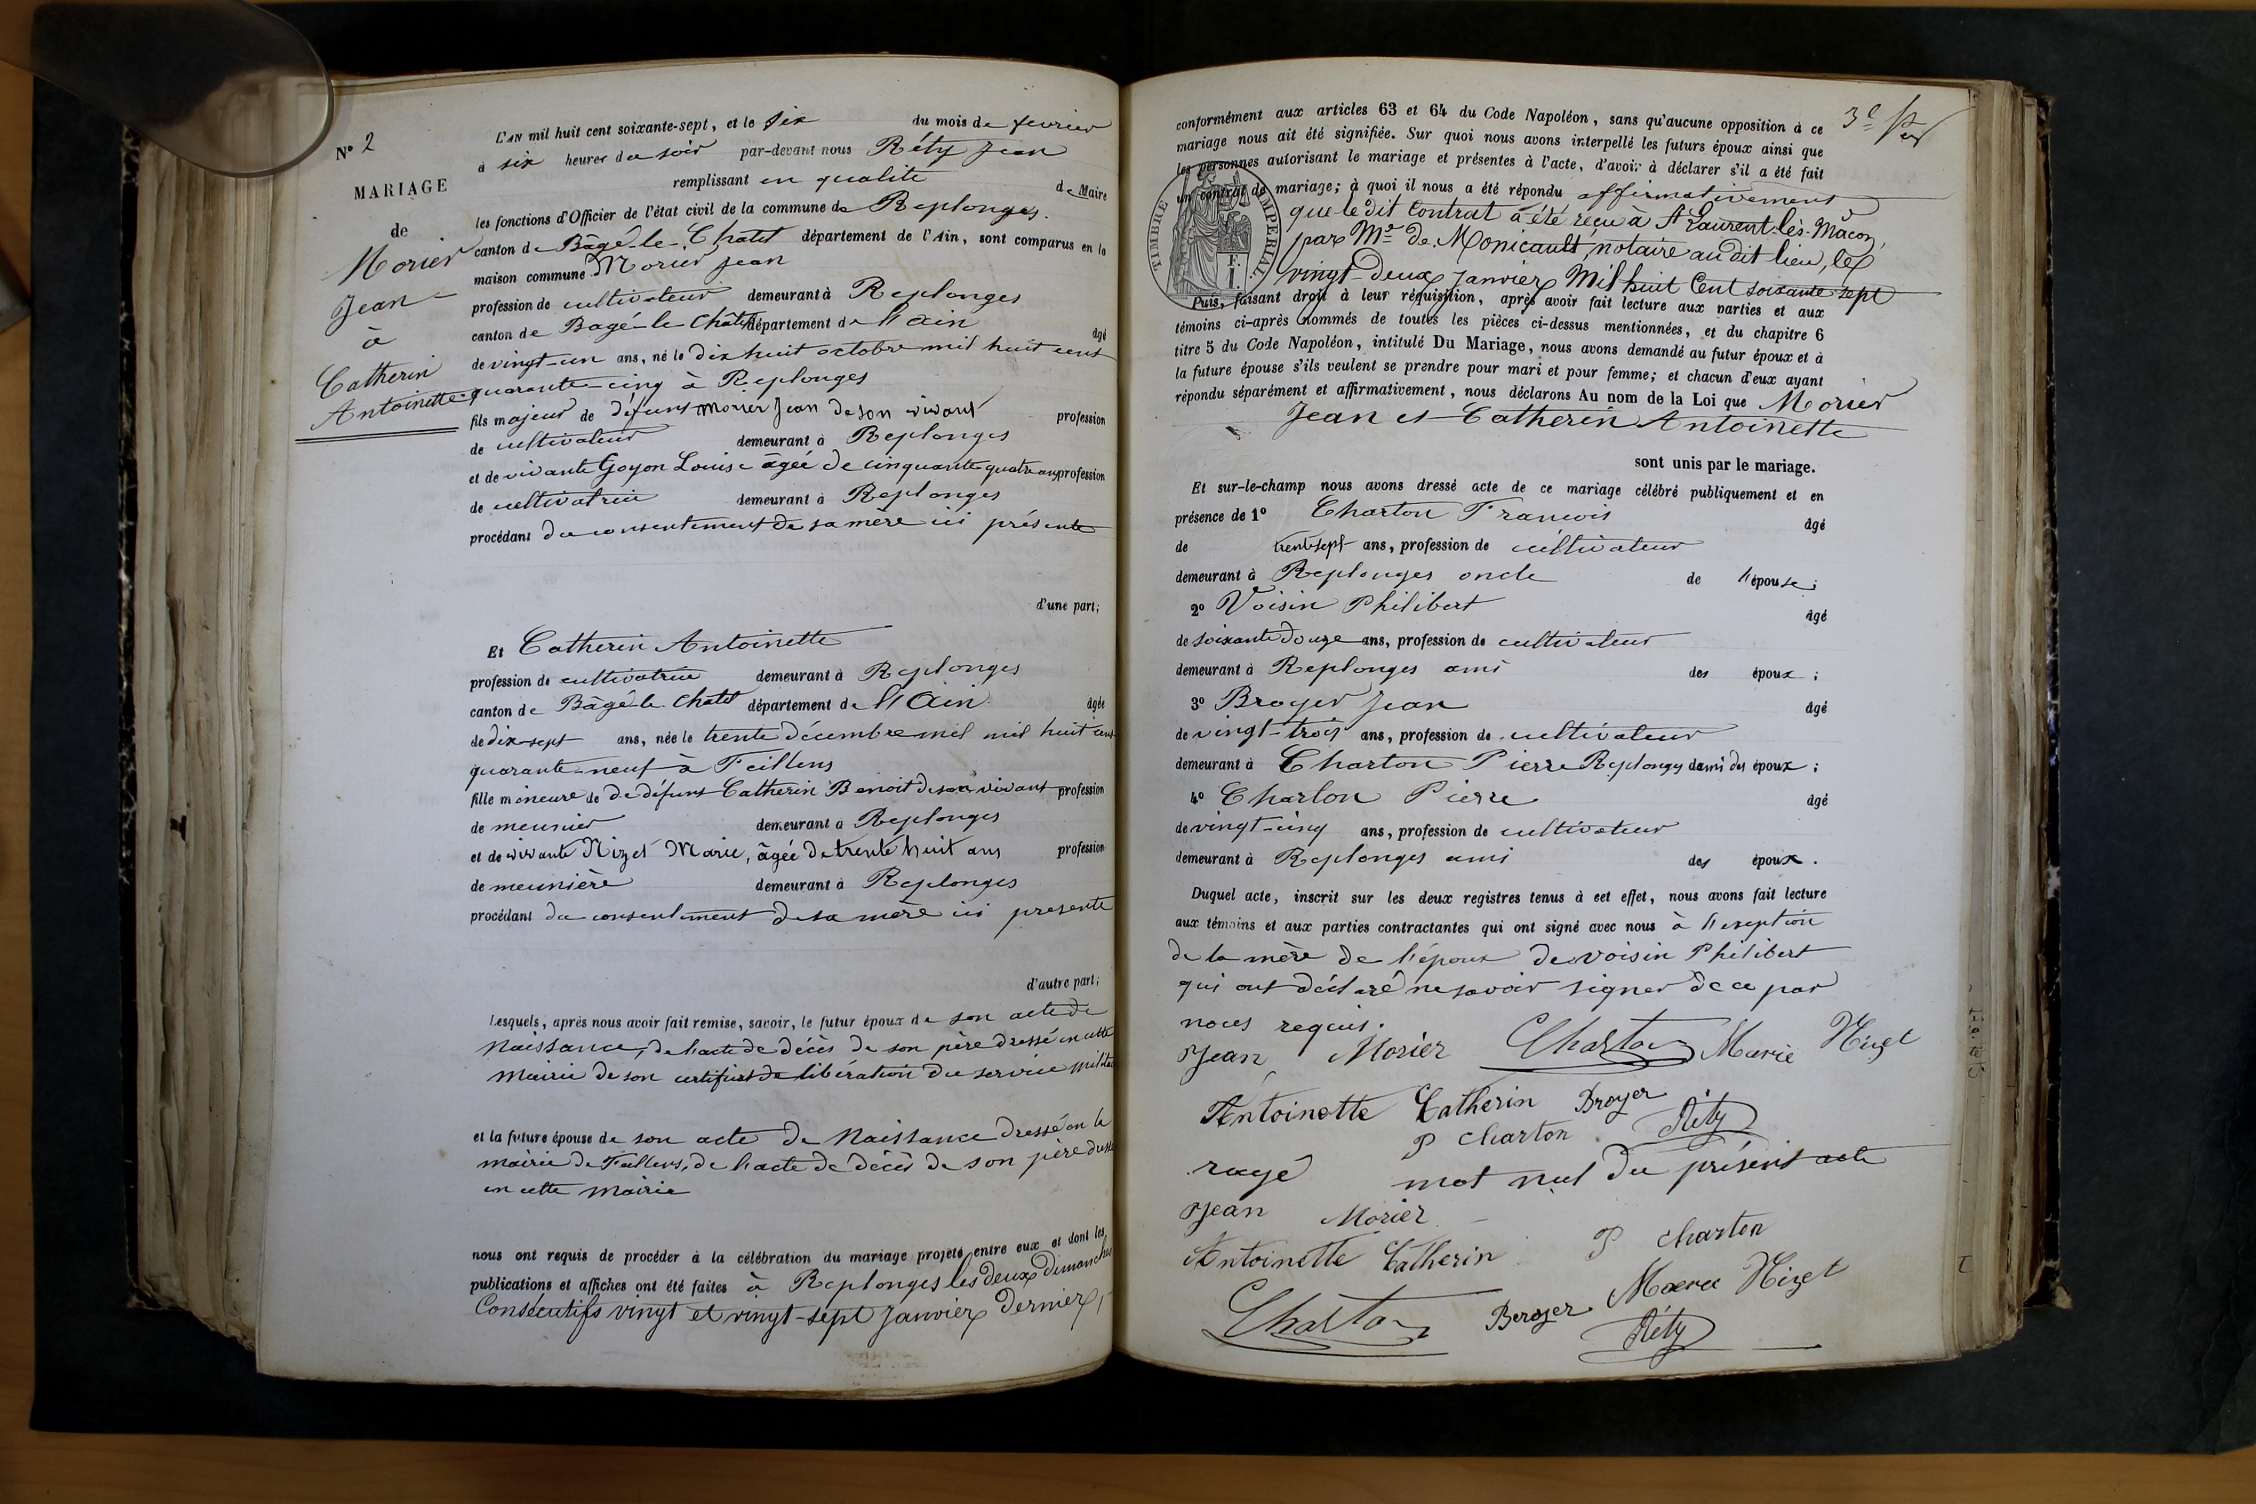 N° 2
MARIAGE
de
Morier
Jean
à
Catherin
Antoinette
L'AN mil huit cent soixante-sept, et le six du mois de fevrier
à six heures du soir par-devant nous Réty Jean
remplissant en qualité de Maire
les fonctions d'Officier de l'état civil de la commune de Replonges.
canton de Bâgé-le-Chatel département de l'Ain, sont comparus en la
maison commune Morier Jean
profession de cultivateur demeurant à Replonges
canton de Bagé-le Châtel département de l'ain âgé
de vingt-un ans, né le dix huit octobre mil huit cent
quarante-cinq à Replonges
fils majeur de défunt Morier Jean de son vivant profession
de cultivateur demeurant à Replonges
et de vivante Goyon Louise âgée de cinquante quatre ans profession
de cultivatrice demeurant à Replonges
procédant du consentement de sa mère ici présente
d'une part;
Et Catherin Antoinette
profession de cultivatrice demeurant à Replonges
canton de Bâgé-le Chatel département de l'Ain âgée
de dix-sept ans, née le trente décembre mil mil huit cent
quarante-neuf à Feillens
fille mineure de de défunt Catherin Benoit de son vivant profession
de meunier demeurant à Replonges
et de vivante Nizet Marie, âgée de trente huit ans profession
de meunière demeurant à Replonges
procédant du consentement de sa mère ici presente
d'autre part;
Lesquels, après nous avoir fait remise, savoir, le futur époux de son acte de
Naissance, de l'acte de décès de son père dressé en cette
Mairie de son certificat de libération du service
et la future épouse de son acte de Naissance dressé en la
mairie de Feillens, de l'acte de décès de son père dressé
en cette Mairie
nous ont requis de procéder à la célébration du mariage projeté entre eux et dont les
publications et affiches ont été faites à Replonges les deux Dimanches
Consécutifs vingt et vingt-sept Janvier Dernier,
3e
conformément aux articles 63 et 64 du Code Napoléon, sans qu'aucune opposition à ce
mariage nous ait été signifiée. Sur quoi nous avons interpellé les futurs époux ainsi que
les personnes autorisant le mariage et présentes à l'acte, d'avoir à déclarer s'il a été fait
un contrat de mariage; à quoi il nous a été répondu affirmativement
que le dit Contrat a été reçu à St Laurent-lès-Mâcon,
par Me de Monicault, notaire au dit lieu, le
vingt-deux Janvier Mil huit Cent soixante sept
TIMBRE IMPERIAL
F.
1.
Puis, faisant droit à leur réquisition, après avoir fait lecture aux parties et aux
témoins ci-après nommés de toutes les pièces ci-dessus mentionnées, et du chapitre 6
titre 5 du Code Napoléon, intitulé Du Mariage, nous avons demandé au futur époux et à
la future épouse s'ils veulent se prendre pour mari et pour femme; et chacun d'eux ayant
répondu séparément et affirmativement, nous déclarons Au nom de la Loi que Morier
Jean et Catherin Antoinette
sont unis par le mariage.
Et sur-le-champ nous avons dressé acte de ce mariage célébré publiquement et en
présence de 1° Charton Francois âgé
de trente sept ans, profession de cultivateur
demeurant à Replonges oncle de l'épouse;
2° Voisin Philibert âgé
de soixante douze ans, profession de cultivateur
demeurant à Replonges ami des époux;
3° Broyer Jean âgé
de vingt-trois ans, profession de cultivateur
demeurant à Charton Pierre Replonges ami des époux;
4° Charton Pierre âgé
de vingt-cinq ans, profession de cultivateur
demeurant à Replonges ami des époux.
Duquel acte, inscrit sur les deux registres tenus à cet effet, nous avons fait lecture
aux témoins et aux parties contractantes qui ont signé avec nous à l'exeption
de la mère de l'époux de voisin Philibert
qui ont déclaré ne savoir signer de ce par
nous requis.
Jean Morier Charton Marie Nizet
Antoinette Catherin Broyer
P Charton Réty
rayé mot nul du présent acte
Jean Morier
Antoinette Catherin P Charton
Charton Broyer Marie Nizet
Réty